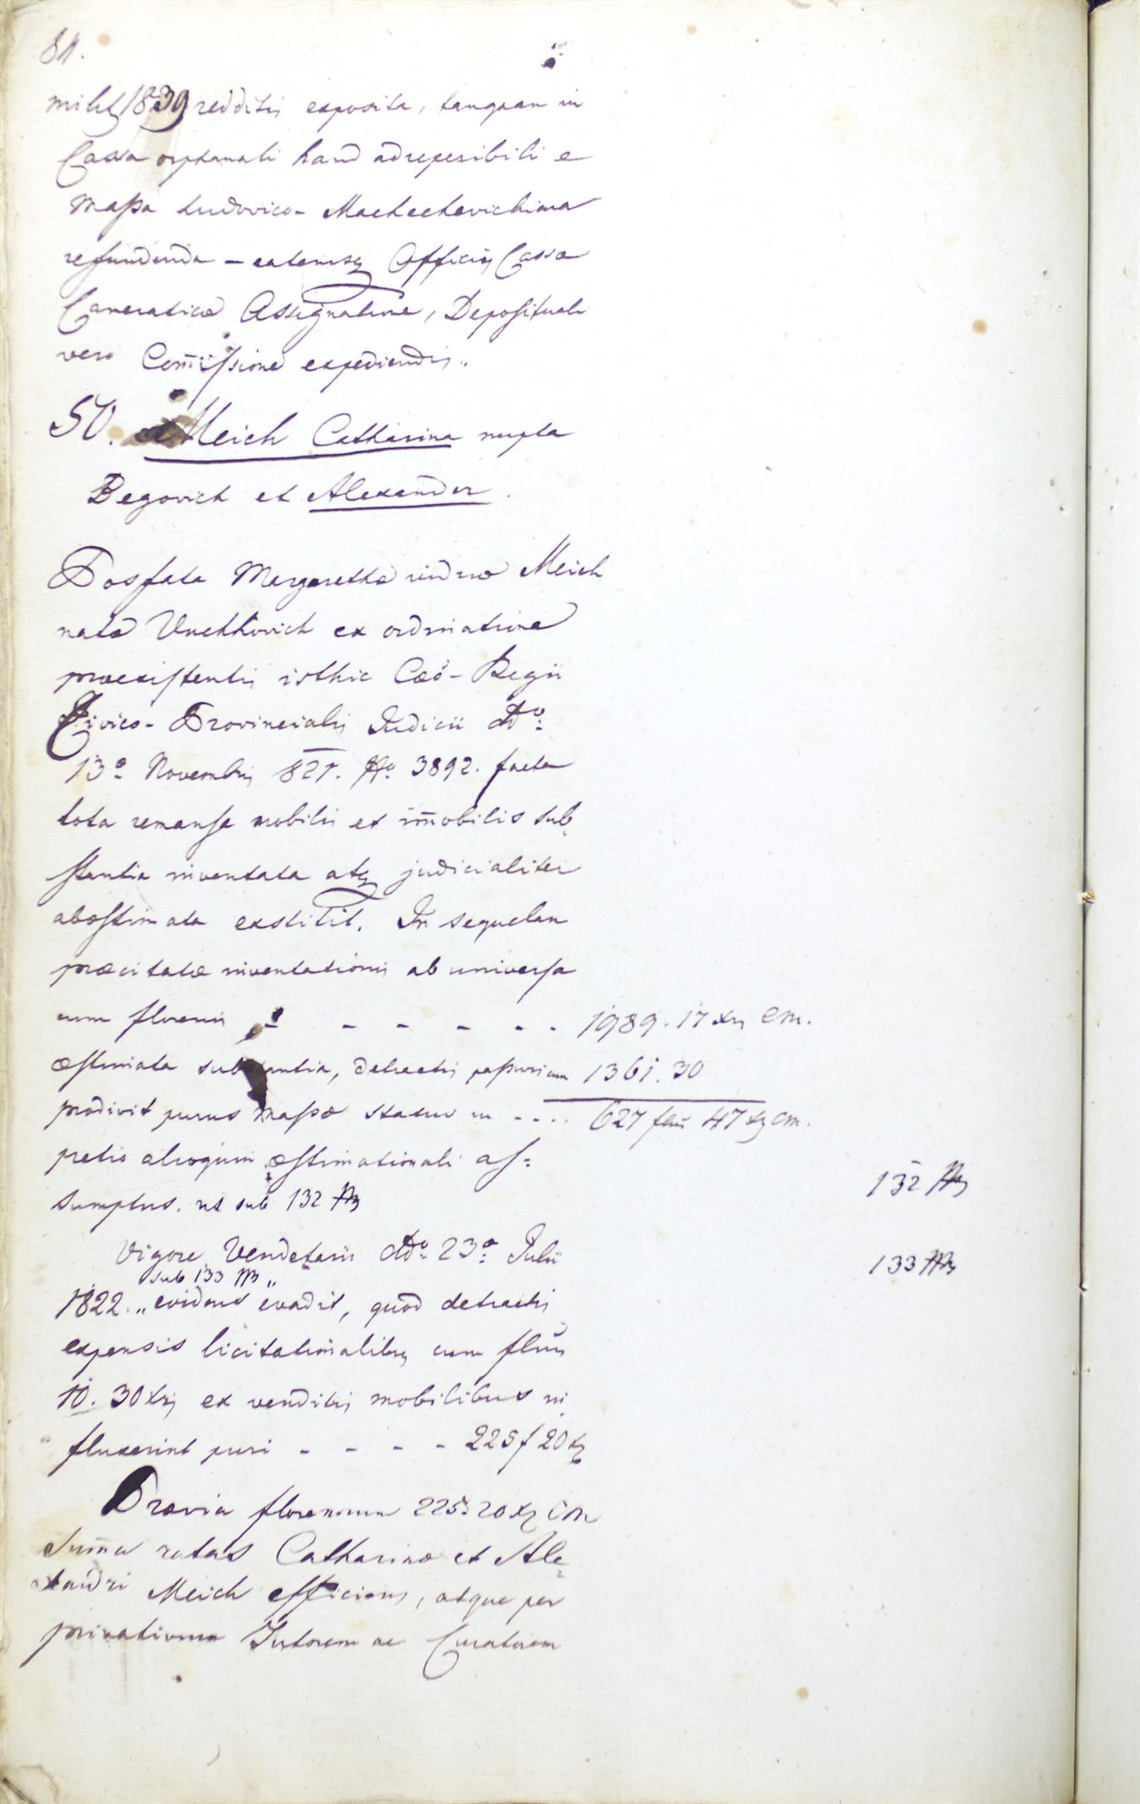 84.
milit 1839 redditis exposita, tanquam in
Cassa orphanali haud adreperibili e
Massa Ludovico-
refundenda – eatenusq Officiis Cassa
Cameratica Assignatione, Deposituali
vero Com̄issione expediendis.
50. Meich Catharina nupta
Begovich et Alexander.
Postfata Margaretha vidua Meich
nata ex ordinatione
praeexistentis isthic Caeō-Regii
Civico-Provincialis Judicii ddo
13a Novembris 821. No 3892. facta
tota remansa mobilis et im̄obilis sub-
stantia inventata atq judicialiter
abaestimata exstitit. In sequelam
praecitatae inventationis ab universa
cum florenis - - - - - - 1989. 17 xris CM.
aestimata substantia, detractis passivis cum 1361. 30
prodivit purus massae status in - .... 627 flnis 47 xq CM.
pretio alioquin aestimationali as-
sumptus. ut sub 132 #
132 #
Vigore Vendetariis ddo 23a Julii
133 #
sub 133 #
1822. „ evidens evadit, quod detractis
expensis licitationalibq cum flnis
10. 30 xris ex venditis mobilibus in
fluxerint puri - - - - 225 f 20 xq
Praevia florenorum 225. 20 xq CM
Sum̄a ratas Catharinae et Ale-
xandri Meich efficiens, atque per
privativum Tutorem ac Curatorem